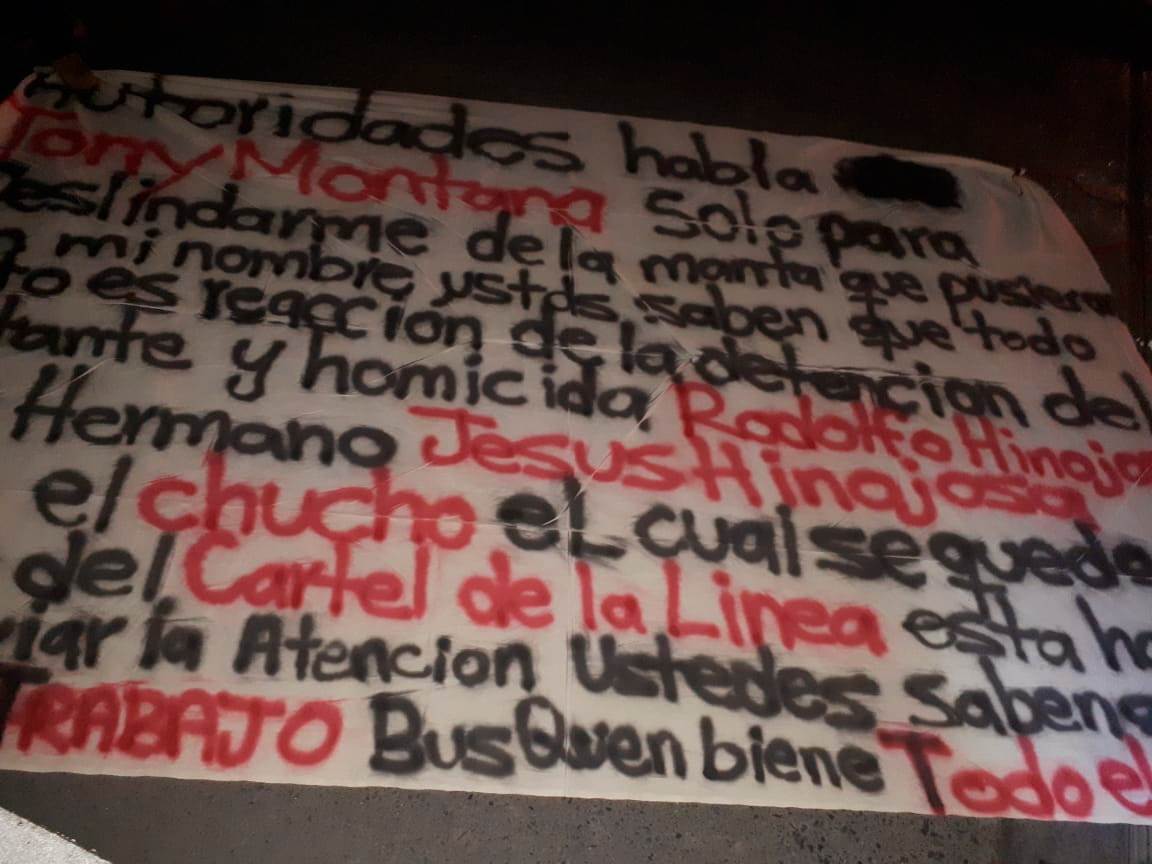 Autoridades habla
Tony Montana Solo para
Deslindarme de la manta que pusieron
mi nombre, ustds, saben que todo
es reaccion de la detencion del
y homicida Rodolfo Hinojo
Hermano Jesus Hinajosa
el chucho eL cual se quedo
del Cartel de la Linea esta
la Atencion Ustedes Saben
TRABAJO BusQuen biene Todo el